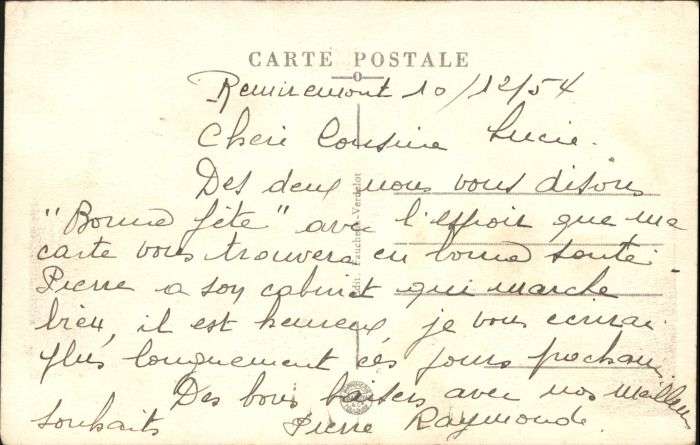 CARTE POSTALE
Remiremont 10/12/54
Cheri Cousine Lucie.
Des deux nous vous disons
"Bonne fête" avec l'espoir que ma
carte vous trouvera en bonne santé.
Pierre a son cabinet qui marche
bien, il est heureux je vous ecrirai
plus longuement ces jours prochains
Des bons baisers avec nos meilleurs
souhaits Pierre Raymonde.
Edit. Faucheux-Verdelot